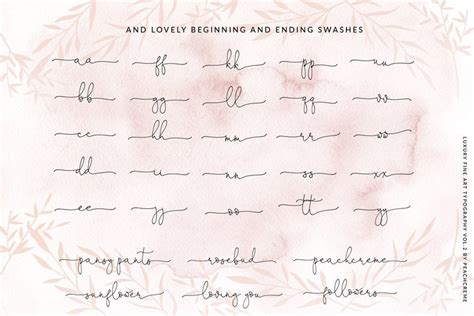 AND LOVELY BEGINNING AND ENDING SWASHES
aa ff kk pp uu
bb gg ll qq vv
cc hh mm rr ww
dd ii nn ss xx
ee jj oo tt yy
pansy pants rosebud peachcreme
sunflower loving you followers
LUXURY FINE ART TYPOGRAPHY VOL. 2 BY PEACHCREME